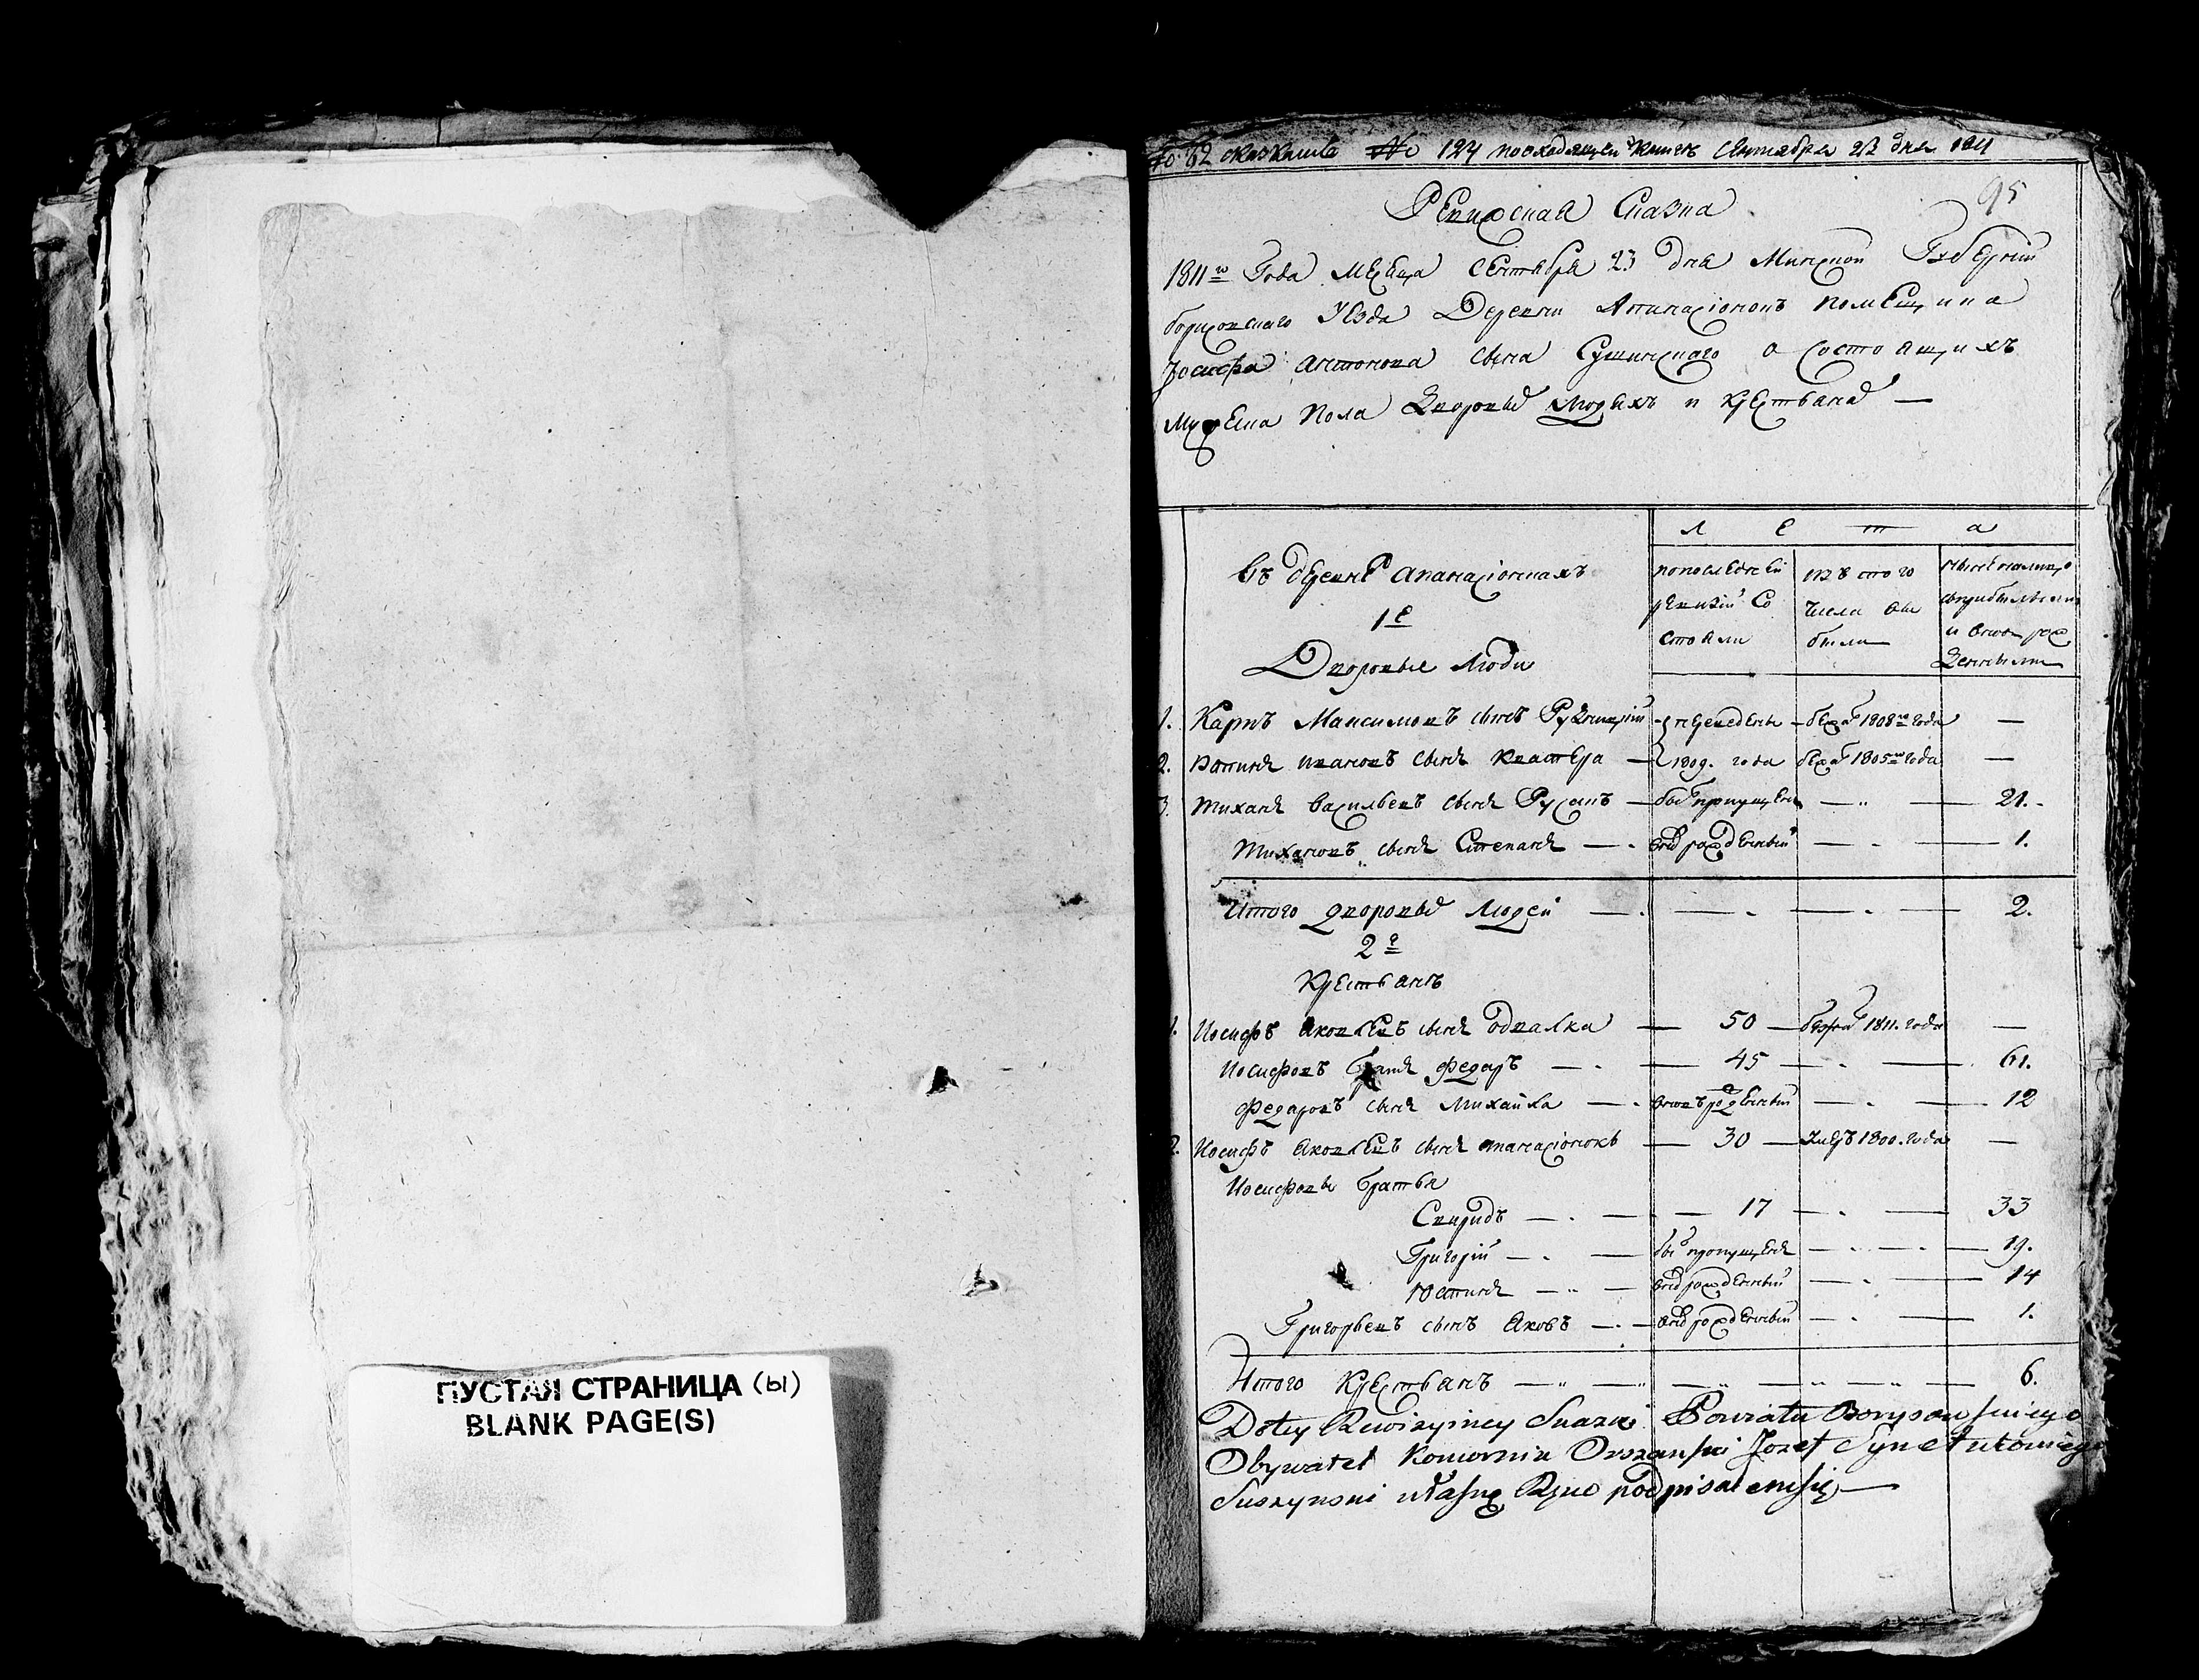 ПУСТАЯ СТРАНИЦА (ы)
BLANK PAGE(S)
62 No 124 повходящей книге Сентября 23 дня 1811
95
Ревижская Сказка
1811го Года месяца Сентября 23 дня Минской Губернии
борисовскаго Уезда Деревни Апанасіонокъ помещика
Іосифа антонова сына Сушинскаго о состоящихъ
Мужеска Пола Дворовых людяхъ и крестьянах —
въ деревне апанасіонкахъ
1е
Дворовые Люди
л е т а
попоследней ревизіи Состояли
изъ того числа выбыли
ныне налицо
1. Карпъ Максимовъ сынъ — переведены — бежал 1808го года —
2. Устинъ ивановъ сынъ — 1809. года бежал 1805го года —
3. тиханъ васильевъ сынъ Русакъ — был пропущенъ — 21.
Тихановъ сынъ Степанъ — внов рожденный — 1.
Итого дворовых людей — 2.
2е
Крестьянъ
1. Иосифъ яковлевъ сынъ одвалка — 50 — бежал 1811. года —
Иосифовъ братъ федаръ — 45 — 61.
федаровъ сынъ Михайла — вновърожденный — 12
2. Иосифъ яковлевъ сынъ апанасіонокъ — 30 — умеръ 1800. года —
Иосифовы братья
Свиридъ — 17 — 33
Григорій — был пропущенъ — 19.
Юстинъ — внов рожденный — 14
Григорьевъ сынъ Яковъ — внов рожденный — 1.
Итого крестьянъ — 6.
Dotey Rewizyiney Skazki Powiatu Borysowskiego
Obywatel Komornik Orszanski Jozef Syn Antoniego
Suszynski własną Ręką podpisałemsię —